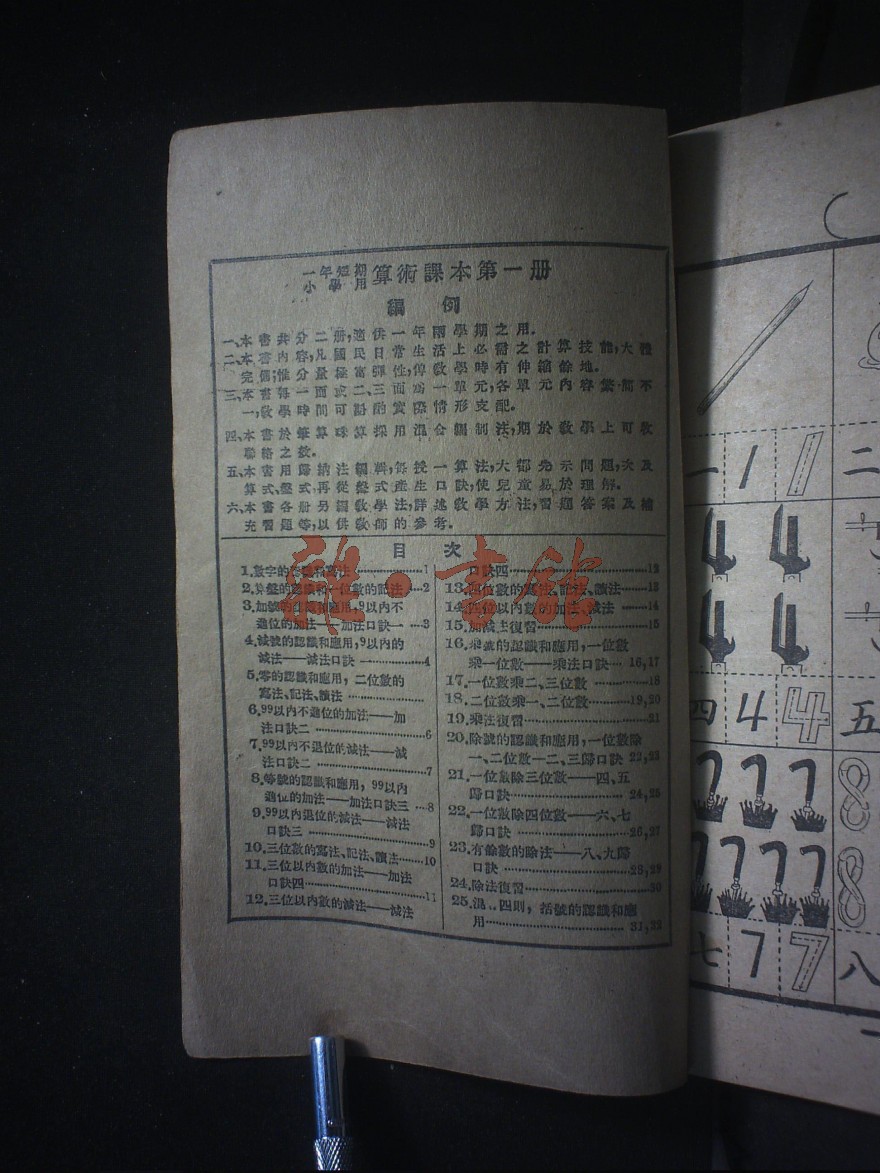 一年短期
小學用
算術課本第一册
編例
一、本書共分二册,適供一年兩學期之用。
二、本書內容,凡國民日常生活上必需之計算技能,大體
完備;惟分量極富彈性,俾教學時有伸縮餘地。
三、本書每一面或二、三面為一單元,各單元內容繁簡不
一,教學時間可斟酌實際情形支配。
四、本書於筆算珠算採用混合編制法,期於教學上可收
聯絡之效。
五、本書用歸納法編輯,每授一算法,大都先示問題,次及
算式、盤式,再從盤式產生口訣,使兒童易於理解。
六、本書各册另編教學法,詳述教學方法,習題答案及補
充習題等,以供教師的參考。
目次
1.數字的認識和寫法 1
2.算盤的認識和一位數的記法 2
3.加號的認識和應用,9以內不
進位的加法——加法口訣一 3
4.減號的認識和應用,9以內的
減法——減法口訣一 4
5.零的認識和應用,二位數的
寫法、記法、讀法
6.99以內不進位的加法——加
法口訣二 6
7.99以內不退位的減法——減
法口訣二 7
8.等號的認識和應用,99以內
進位的加法——加法口訣三 8
9.99以內退位的減法——減法
口訣三 9
10.三位數的寫法、記法、讀法 10
11.三位以內數的加法——加法
口訣四 11
12.三位以內數的減法——減法
口訣四 12
13.四位數的寫法、記法、讀法 13
14.四位以內數的加法、減法 14
15.加減法復習 15
16.乘號的認識和應用,一位數
乘一位數——乘法口訣 16,17
17.一位數乘二、三位數 18
18.二位數乘一、二位數 19,20
19.乘法復習 21
20.除號的認識和應用,一位數除
一、二位數—二、三歸口訣 22,23
21.一位數除三位數——四、五
歸口訣 24,25
22.一位數除四位數——六、七
歸口訣 26,27
23.有餘數的除法——八、九歸
口訣 28,29
24.除法復習 30
25.混 四則,括號的認識和應
用 31,32
雜·書館
一 1 1 二
四 4 4 五
七 7 7 八